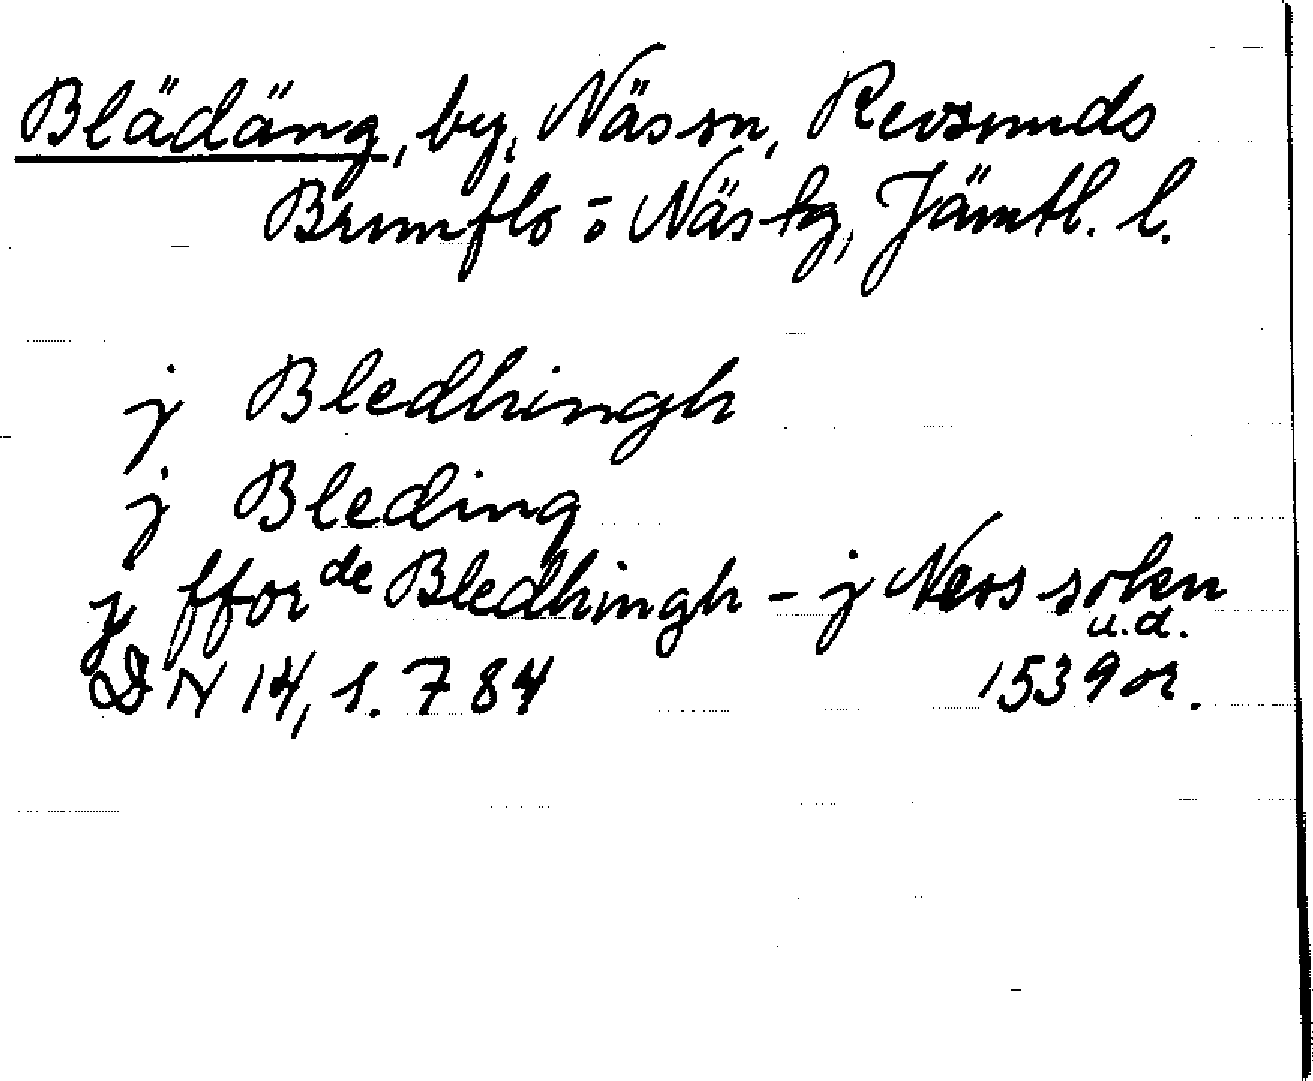 Blädäng, by, Näs sn, Revsunds
Brunflo o Näs tg, Jämtl. l.
j Bledhingh
j Bleding
j fforde Bledhingh - j Næss sokn
u.d.
DN 14, s. 784 1539 or.